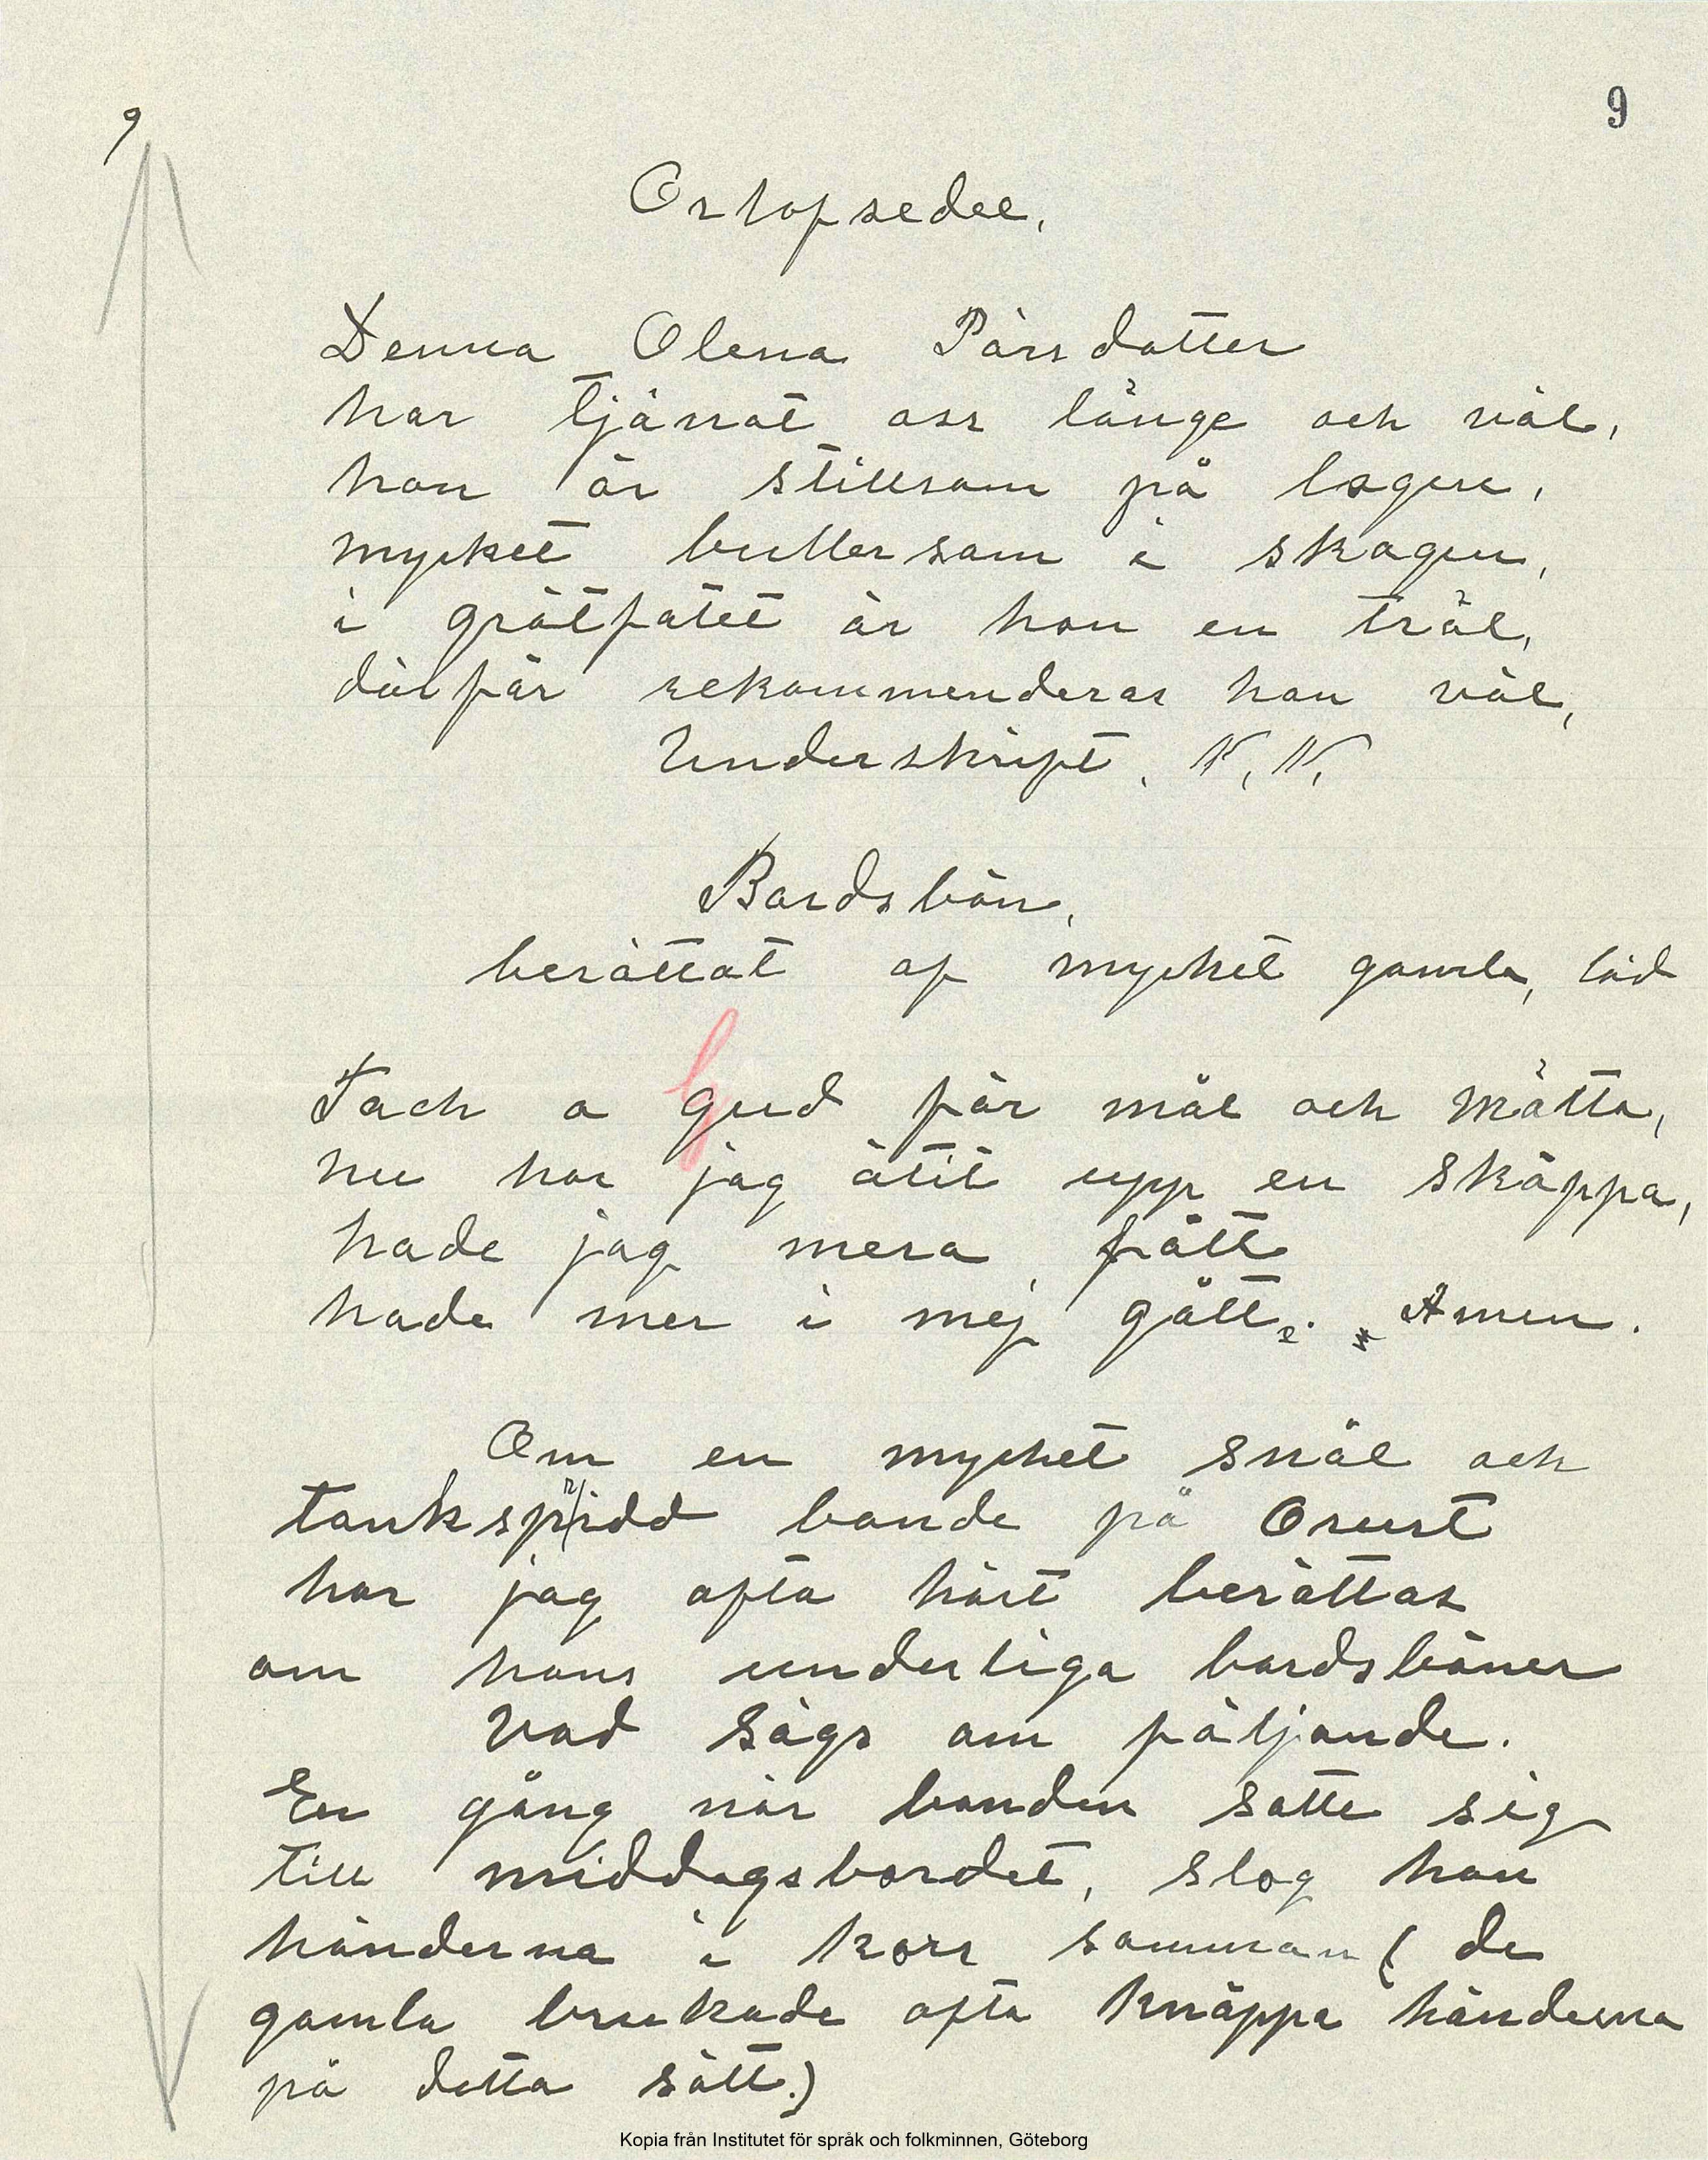 9
9
Orlofsedel.
Denna Olena Pärsdotter
har tjänat oss länge och väl,
hon är stillsam på logen,
mycket bullersam i skogen,
i grötfatet är hon en träl,
därför rekommenderas hon väl,
Underskrift. N. N.
Bordsbön,
berättat af mycket gamla, löd
Tack o gud för mål och mätta,
nu har jag ätit upp en skäppa,
hade jag mera fått
hade mer i mej gått. Amen.
Om en mycket snål och
tankspridd bonde på Orust
har jag ofta hört berättas
om hans underliga bordsböner
Vad sägs om följande.
En gång när bonden satte sig
till middagsbordet, slog han
händerna i kors samman (de
gamla brukade ofta knäppa händerna
på detta sätt.)
Kopia från Institutet för språk och folkminnen, Göteborg